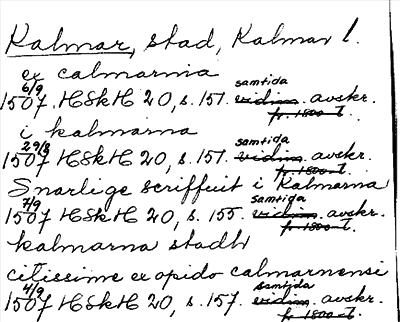 Kalmar, stad, Kalmar l.
ex calmarnia
6/9 samtida
1507. HSkH 20, s. 151. vidim. avskr.
fr. 1800-t.
i kalmarna
29/8 samtida
1507. HSkH 20, s. 151. vidim. avskr.
fr. 1800-t.
Snarlige scriffuit i Kalmarna
7/9 samtida
1507 HSkH 20, s. 155. vidim. avskr.
fr. 1800-t.
kalmarna stadh
citissime ex opido calmarnensi
4/9 samtida
1507 HSkH 20, s. 157. vidim. avskr.
fr. 1800-t.